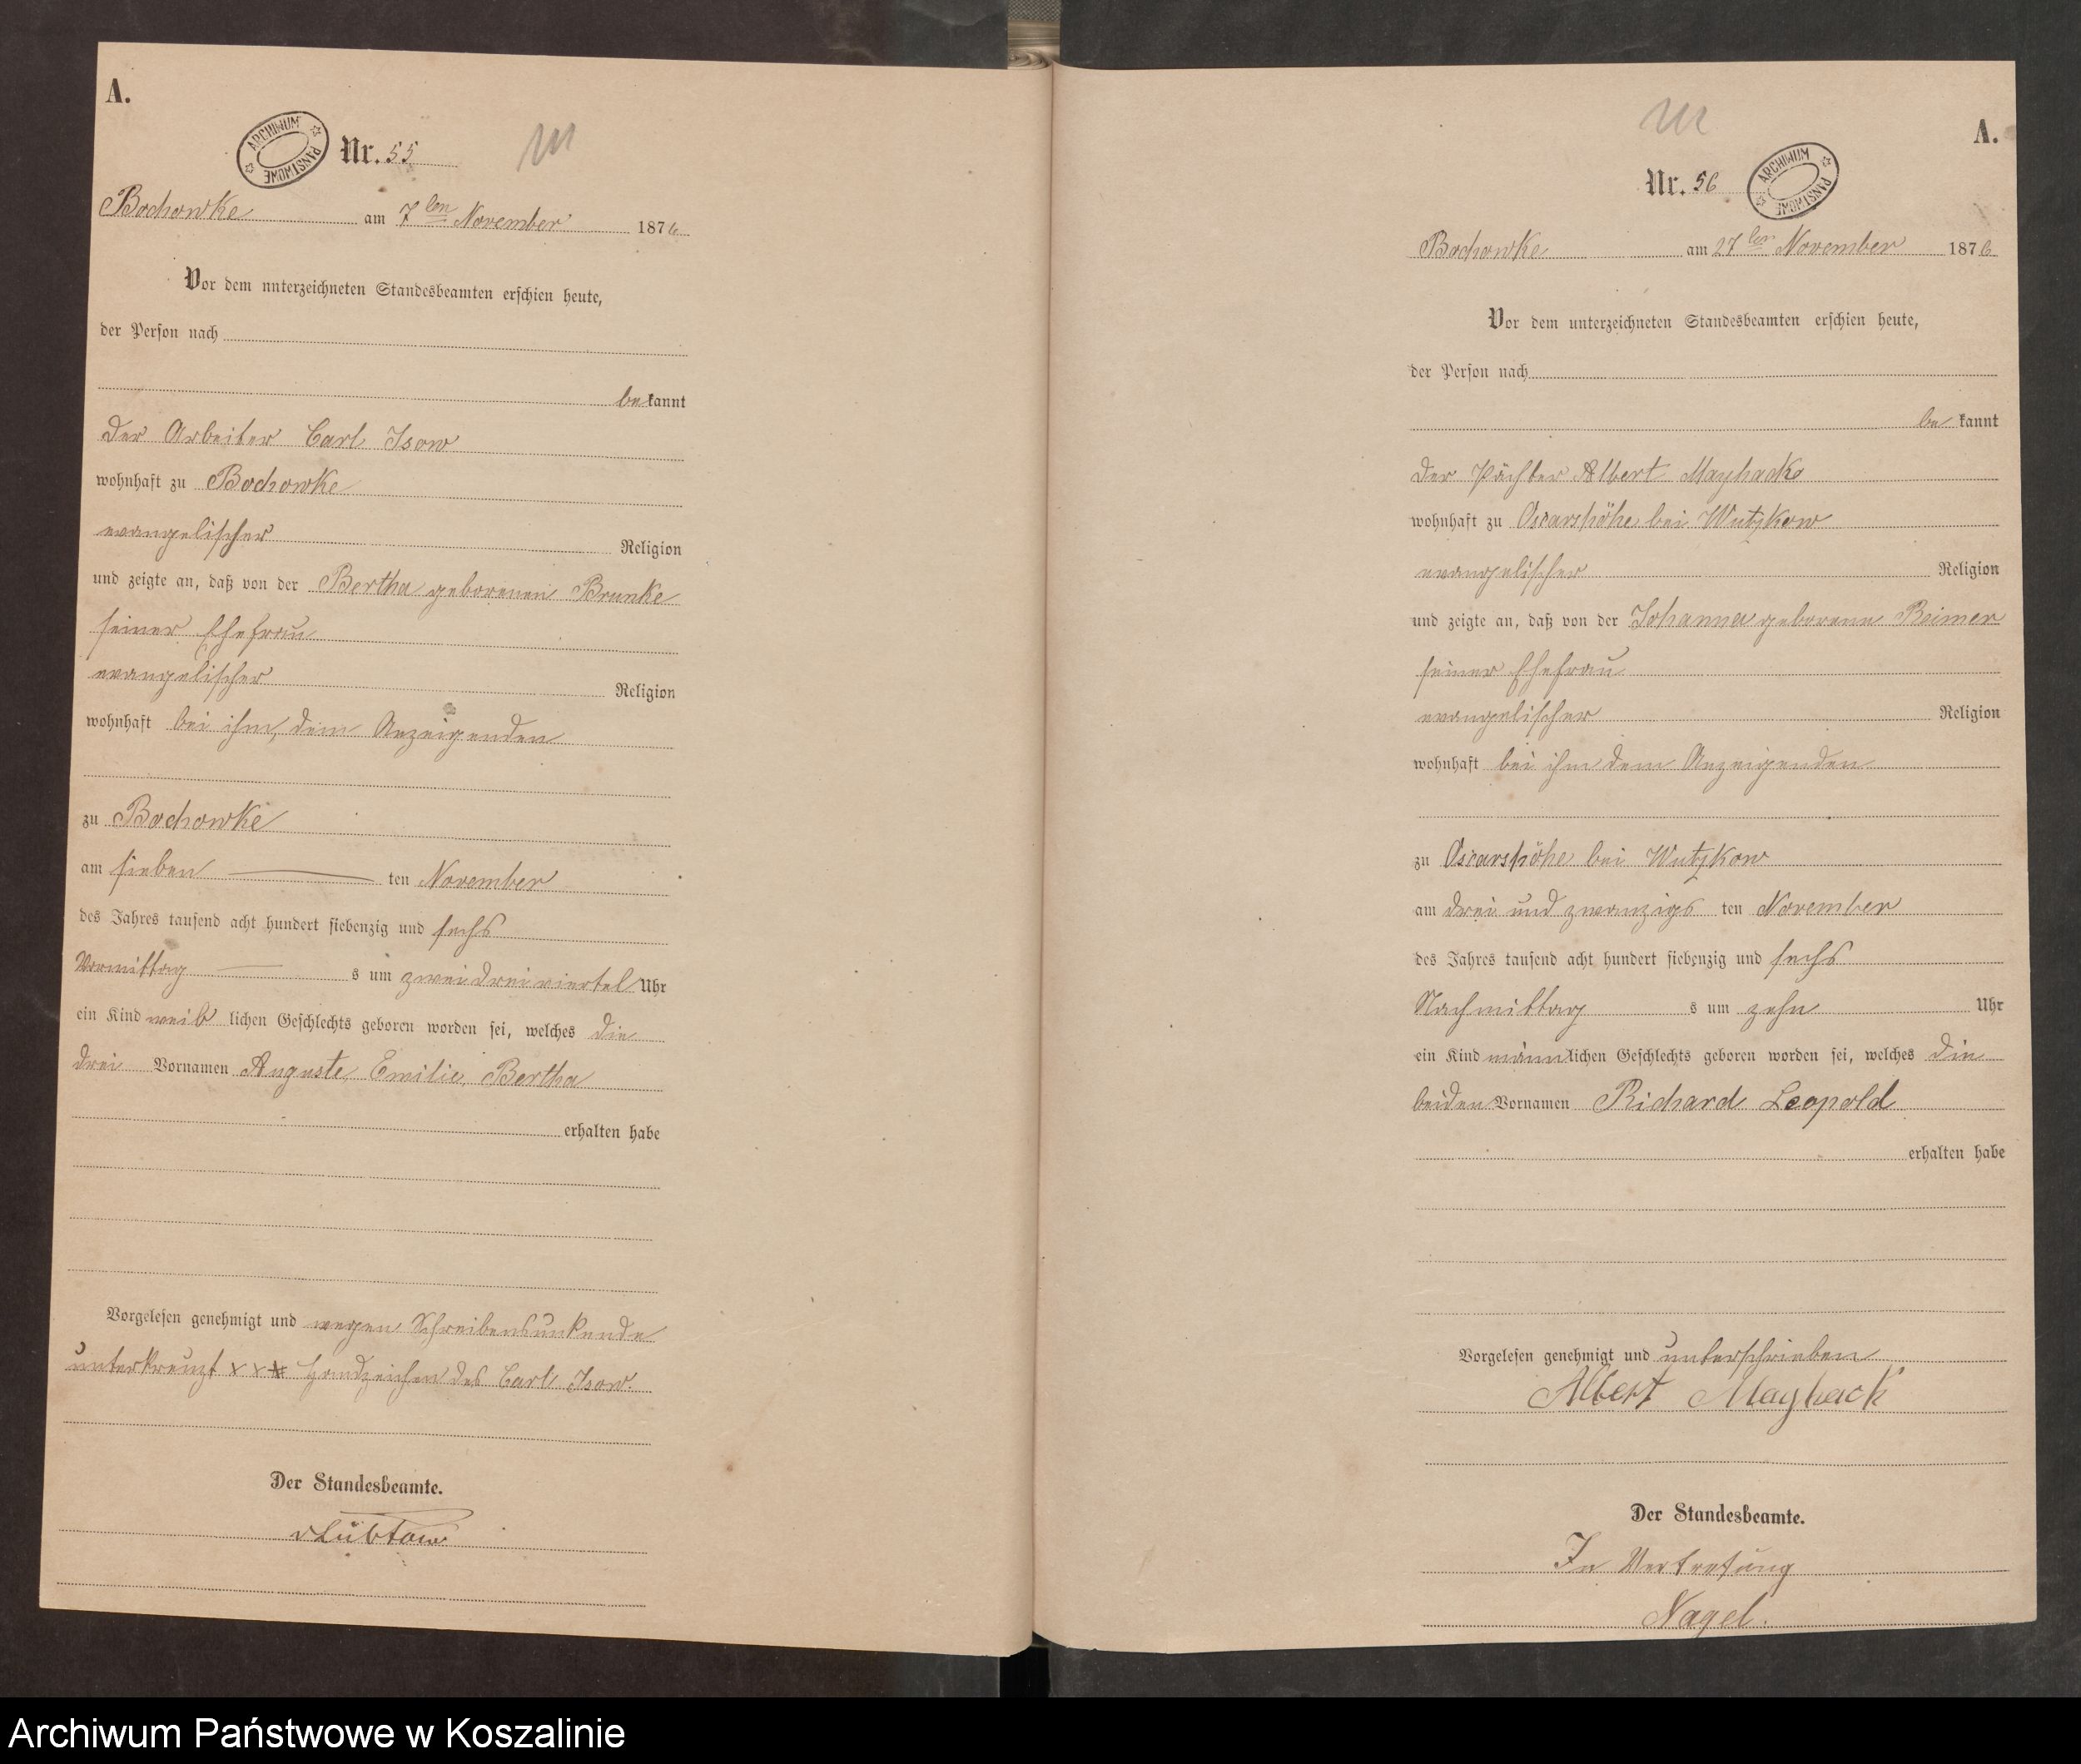 A.
ARCHIWUM PAŃSTWOWE
Nr. 55
Bochowke am 7ten November 1876
Vor dem unterzeichneten Standesbeamten erschien heute,
der Person nach
bekannt
der Arbeiter Carl Isow
wohnhaft zu Bochowke
evangelischer Religion
und zeigte an, daß von der Bertha geborenen Brunke
seiner Ehefrau
evangelischer Religion
wohnhaft bei ihm, dem Anzeigenden
zu Bochowke
am sieben ten November
des Jahres tausend acht hundert siebenzig und sechs
Vormittag s um zweidreiviertel Uhr
ein Kind weib lichen Geschlechts geboren worden sei, welches die
drei Vornamen Auguste, Emilie, Bertha
erhalten habe
Vorgelesen genehmigt und wegen Schreibensunkunde
unterkreuzt x x x Handzeichen des Carl Isow.
Der Standesbeamte.
vLübtow
A.
ARCHIWUM PAŃSTWOWE
Nr. 56
Bochowke am 27ten November 1876
Vor dem unterzeichneten Standesbeamten erschien heute,
der Person nach
be kannt
der Pächter Albert Mayhack
wohnhaft zu Oscarshöhe bei Wutzkow
evangelischer Religion
und zeigte an, daß von der Johanna geborene Reimer
seiner Ehefrau
evangelischer Religion
wohnhaft bei ihm dem Anzeigenden
zu Oscarshöhe bei Wutzkow
am drei und zwanzigs ten November
des Jahres tausend acht hundert siebenzig und sechs
Nachmittag s um zehn Uhr
ein Kind männlichen Geschlechts geboren worden sei, welches die
beiden Vornamen Richard Leopold
erhalten habe
Vorgelesen genehmigt und unterschrieben
Albert Mayhack
Der Standesbeamte.
In Vertretung
Nagel.
Archiwum Państwowe w Koszalinie